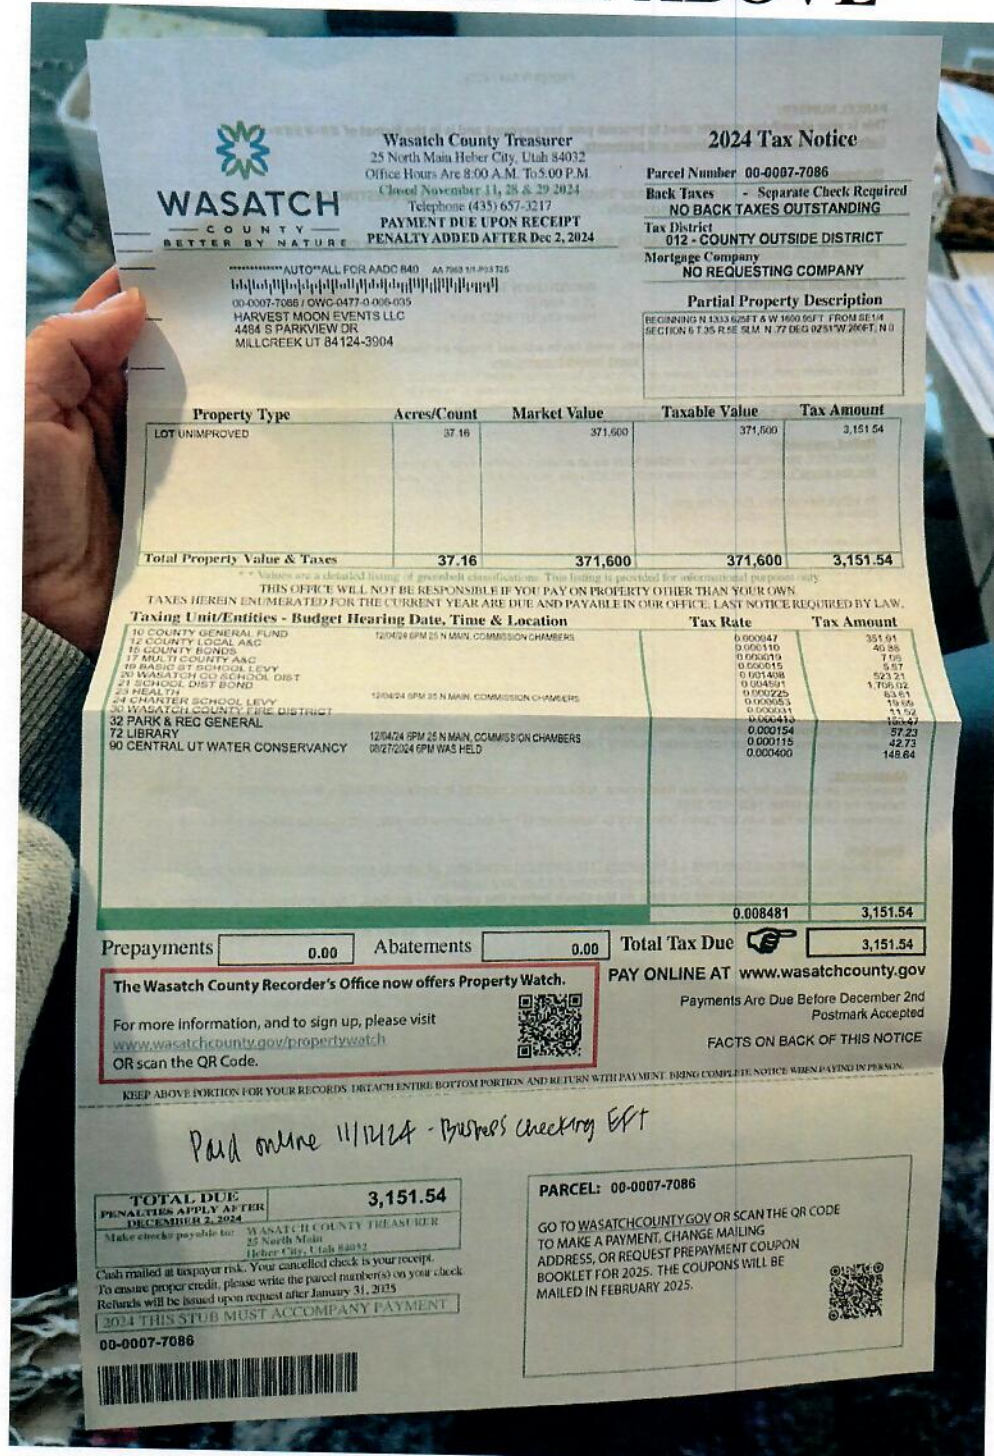 WASATCH
COUNTY
BETTER BY NATURE
Wasatch County Treasurer
25 North Main Heber City, Utah 84032
Office Hours Are 8:00 A.M. To 5:00 P.M.
Closed November 11, 28 & 29 2024
Telephone (435) 657-3217
PAYMENT DUE UPON RECEIPT
PENALTY ADDED AFTER Dec 2, 2024
2024 Tax Notice
Parcel Number 00-0007-7086
Back Taxes - Separate Check Required
NO BACK TAXES OUTSTANDING
Tax District
012 - COUNTY OUTSIDE DISTRICT
Mortgage Company
NO REQUESTING COMPANY
Partial Property Description
BEGINNING N 1333.625FT & W 1600.95FT FROM SE1/4
SECTION 6 T.3S R.5E SLM. N .77 DEG
AUTO**ALL FOR AADC 840
00-0007-7086 / OWC-0477-0-006-035
HARVEST MOON EVENTS LLC
4484 S PARKVIEW DR
MILLCREEK UT 84124-3904
Property Type Acres/Count Market Value Taxable Value Tax Amount
LOT UNIMPROVED 37.16 371,600 371,600 3,151.54
Total Property Value & Taxes 37.16 371,600 371,600 3,151.54
** Values are a detailed listing of greenbelt classifications. This listing is provided for informational purposes only
THIS OFFICE WILL NOT BE RESPONSIBLE IF YOU PAY ON PROPERTY OTHER THAN YOUR OWN
TAXES HEREIN ENUMERATED FOR THE CURRENT YEAR ARE DUE AND PAYABLE IN OUR OFFICE. LAST NOTICE REQUIRED BY LAW.
Taxing Unit/Entities - Budget Hearing Date, Time & Location Tax Rate Tax Amount
10 COUNTY GENERAL FUND 12/04/24 6PM 25 N MAIN, COMMISSION CHAMBERS 0.000947 351.91
12 COUNTY LOCAL A&C 0.000110 40.88
15 COUNTY BONDS 0.000019 7.06
17 MULTI COUNTY A&C 0.000015 5.57
19 BASIC ST SCHOOL LEVY 0.001408 523.21
20 WASATCH CO SCHOOL DIST 0.004591 1,706.02
21 SCHOOL DIST BOND 0.000225 83.61
23 HEALTH 12/04/24 6PM 25 N MAIN, COMMISSION CHAMBERS 0.000053 19.69
24 CHARTER SCHOOL LEVY 0.000031 11.52
30 WASATCH COUNTY FIRE DISTRICT 0.000413 153.47
32 PARK & REC GENERAL 0.000154 57.23
72 LIBRARY 12/04/24 6PM 25 N MAIN, COMMISSION CHAMBERS 0.000115 42.73
90 CENTRAL UT WATER CONSERVANCY 08/27/2024 6PM WAS HELD 0.000400 148.64
0.008481 3,151.54
Prepayments 0.00 Abatements 0.00 Total Tax Due 3,151.54
The Wasatch County Recorder's Office now offers Property Watch.
For more information, and to sign up, please visit
www.wasatchcounty.gov/propertywatch
OR scan the QR Code.
PAY ONLINE AT www.wasatchcounty.gov
Payments Are Due Before December 2nd
Postmark Accepted
FACTS ON BACK OF THIS NOTICE
KEEP ABOVE PORTION FOR YOUR RECORDS. DETACH ENTIRE BOTTOM PORTION AND RETURN WITH PAYMENT. BRING COMPLETE NOTICE WHEN PAYING IN PERSON.
Paid online 11/12/24 - checking EFT
TOTAL DUE 3,151.54
PENALTIES APPLY AFTER
DECEMBER 2, 2024
Make checks payable to: WASATCH COUNTY TREASURER
25 North Main
Heber City, Utah 84032
Cash mailed at taxpayer risk. Your cancelled check is your receipt.
To ensure proper credit, please write the parcel number(s) on your check
Refunds will be issued upon request after January 31, 2025
2024 THIS STUB MUST ACCOMPANY PAYMENT
00-0007-7086
PARCEL: 00-0007-7086
GO TO WASATCHCOUNTY.GOV OR SCAN THE QR CODE
TO MAKE A PAYMENT, CHANGE MAILING
ADDRESS, OR REQUEST PREPAYMENT COUPON
BOOKLET FOR 2025. THE COUPONS WILL BE
MAILED IN FEBRUARY 2025.